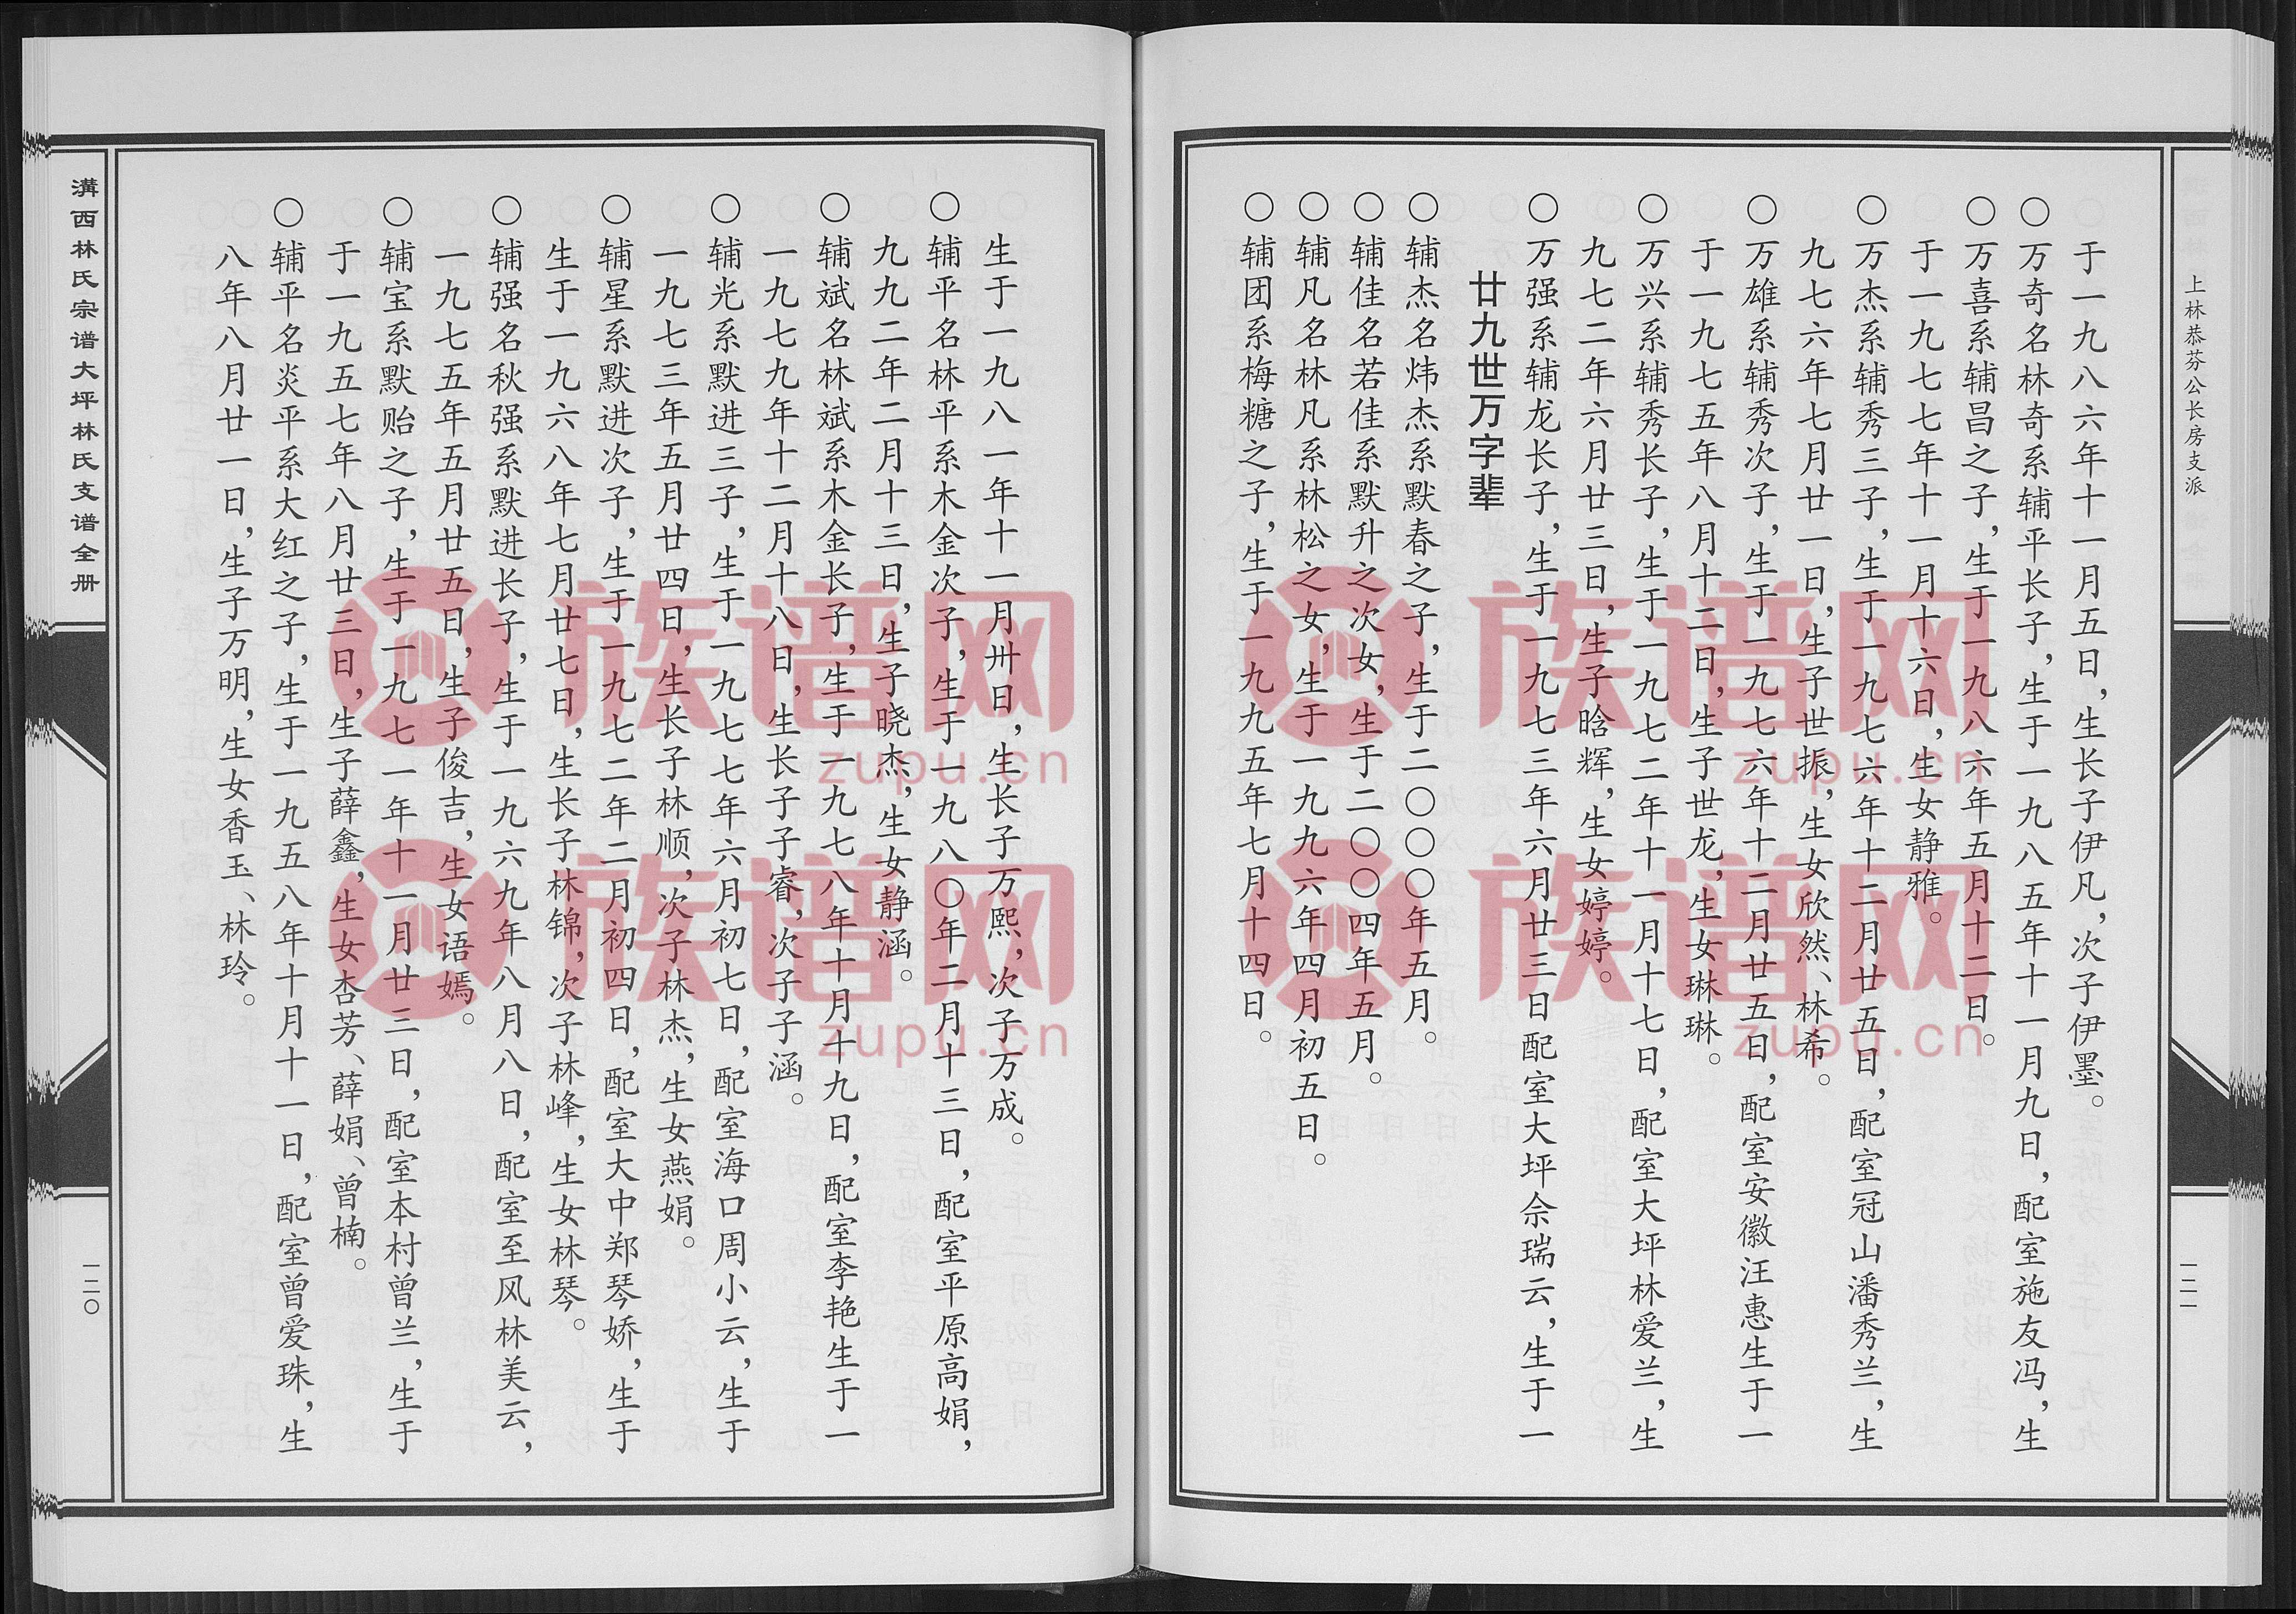 溝西林氏宗谱大坪林氏支谱全册
一二〇
八年八月廿一日，生子万明，生女香玉、林玲。
〇辅平名炎平系大红之子，生于一九五八年十月十一日，配室曾爱珠，生
于一九五七年八月廿三日，生子薛鑫，生女杏芳、薛娟、曾楠。
〇辅宝系默贻之子，生于一九七一年十一月廿三日，配室本村曾兰，生于
一九七五年五月廿五日，生子俊吉，生女语嫣。
〇辅强名秋强系默进长子，生于一九六九年八月八日，配室至风林美云，
生于一九六八年七月廿七日，生长子林锦，次子林峰，生女林琴。
〇辅星系默进次子，生于一九七二年二月初四日，配室大中郑琴娇，生于
一九七三年五月廿四日，生长子林顺，次子林杰，生女燕娟。
〇辅光系默进三子，生于一九七七年六月初七日，配室海口周小云，生于
一九七九年十二月十八日，生长子子睿，次子子涵。
〇辅斌名林斌系木金长子，生于一九七八年十月十九日，配室李艳生于一
九九二年二月十三日，生子晓杰，生女静涵。
〇辅平名林平系木金次子，生于一九八〇年二月十三日，配室平原高娟，
生于一九八一年十一月卅日，生长子万熙，次子万成。
〇辅团系梅糖之子，生于一九九五年七月十四日。
〇辅凡名林凡系林松之女，生于一九九六年四月初五日。
〇辅佳名若佳系默升之次女，生于二〇〇四年五月。
〇辅杰名炜杰系默春之子，生于二〇〇〇年五月。
廿九世万字辈
〇万强系辅龙长子，生于一九七三年六月廿三日配室大坪佘瑞云，生于一
九七二年六月廿三日，生子晗辉，生女婷婷。
〇万兴系辅秀长子，生于一九七二年十一月十七日，配室大坪林爱兰，生
于一九七五年八月十二日，生子世龙，生女琳琳。
〇万雄系辅秀次子，生于一九七六年十二月廿五日，配室安徽汪惠生于一
九七六年七月廿一日，生子世振，生女欣然、林希。
〇万杰系辅秀三子，生于一九七六年十二月廿五日，配室冠山潘秀兰，生
于一九七七年十一月十六日，生女静雅。
〇万喜系辅昌之子，生于一九八六年五月十二日。
〇万奇名林奇系辅平长子，生于一九八五年十一月九日，配室施友冯，生
于一九八六年十一月五日，生长子伊凡，次子伊墨。
上林恭芬公长房支派
一二一
族谱网
zupu.cn
族谱网
zupu.cn
族谱网
zupu.cn
族谱网
zupu.cn